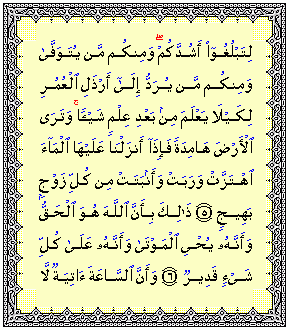 لِتَبْلُغُوٓا۟ أَشُدَّكُمْ ۖ وَمِنكُم مَّن يُتَوَفَّىٰ
وَمِنكُم مَّن يُرَدُّ إِلَىٰٓ أَرْذَلِ ٱلْعُمُرِ
لِكَيْلَا يَعْلَمَ مِنۢ بَعْدِ عِلْمٍ شَيْـًٔا ۚ وَتَرَى
ٱلْأَرْضَ هَامِدَةً فَإِذَآ أَنزَلْنَا عَلَيْهَا ٱلْمَآءَ
ٱهْتَزَّتْ وَرَبَتْ وَأَنۢبَتَتْ مِن كُلِّ زَوْجٍۭ
بَهِيجٍ ﴿٥﴾ ذَٰلِكَ بِأَنَّ ٱللَّهَ هُوَ ٱلْحَقُّ
وَأَنَّهُۥ يُحْىِ ٱلْمَوْتَىٰ وَأَنَّهُۥ عَلَىٰ كُلِّ
شَىْءٍ قَدِيرٌ ﴿٦﴾ وَأَنَّ ٱلسَّاعَةَ ءَاتِيَةٌ لَّا